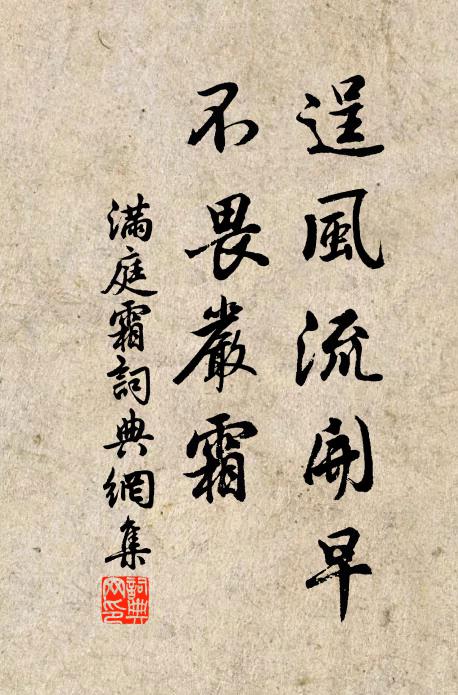 逞風流開早
不畏嚴霜
滿庭霜詞典網集
詞典
网印